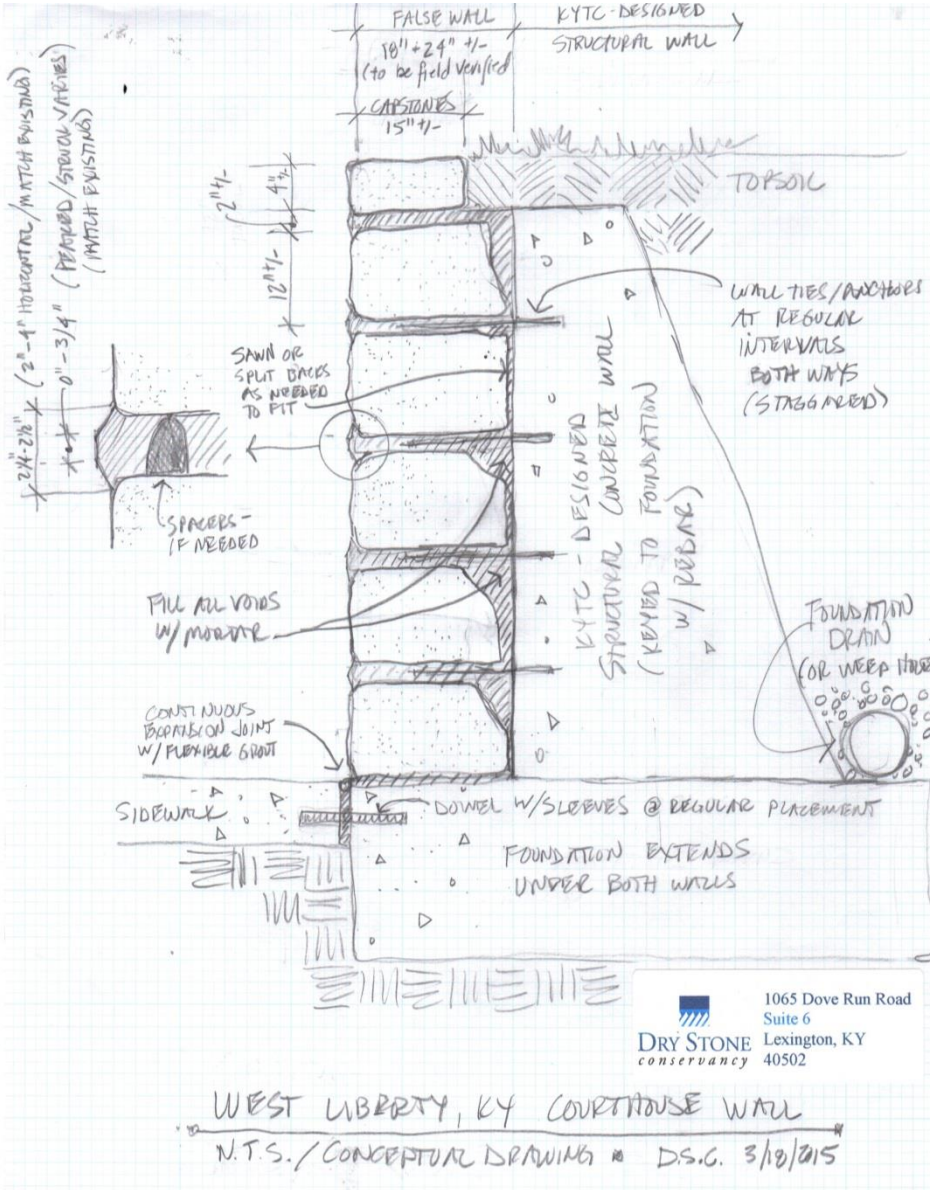 FALSE WALL
18"+24" +/-
(to be field verified
KYTC-DESIGNED
STRUCTURAL WALL
CAPSTONES
15"+/-
2"+/-
4"+/-
12"+/-
2¼-2½" (2"-4" HORIZONTAL/MATCH EXISTING)
0"-3/4" (BEADED/STRUCK VARIES)
(MATCH EXISTING)
TOPSOIL
WALL TIES/ANCHORS
AT REGULAR
INTERVALS
BOTH WAYS
(STAGGARED)
SAWN OR
SPLIT BACKS
AS NEEDED
TO FIT
SPACERS-
IF NEEDED
KYTC - DESIGNED
STRUCTURAL CONCRETE WALL
(KEYED TO FOUNDATION)
W/ REBAR)
FILL ALL VOIDS
W/ MORTAR
FOUNDATION
DRAIN
(OR WEEP HOLE
CONTINUOUS
EXPANSION JOINT
W/ FLEXIBLE GROUT
SIDEWALK
DOWEL W/SLEEVES @ REGULAR PLACEMENT
FOUNDATION EXTENDS
UNDER BOTH WALLS
DRY STONE
conservancy
1065 Dove Run Road
Suite 6
Lexington, KY
40502
WEST LIBERTY, KY COURTHOUSE WALL
N.T.S./CONCEPTUAL DRAWING • D.S.C. 3/18/2015